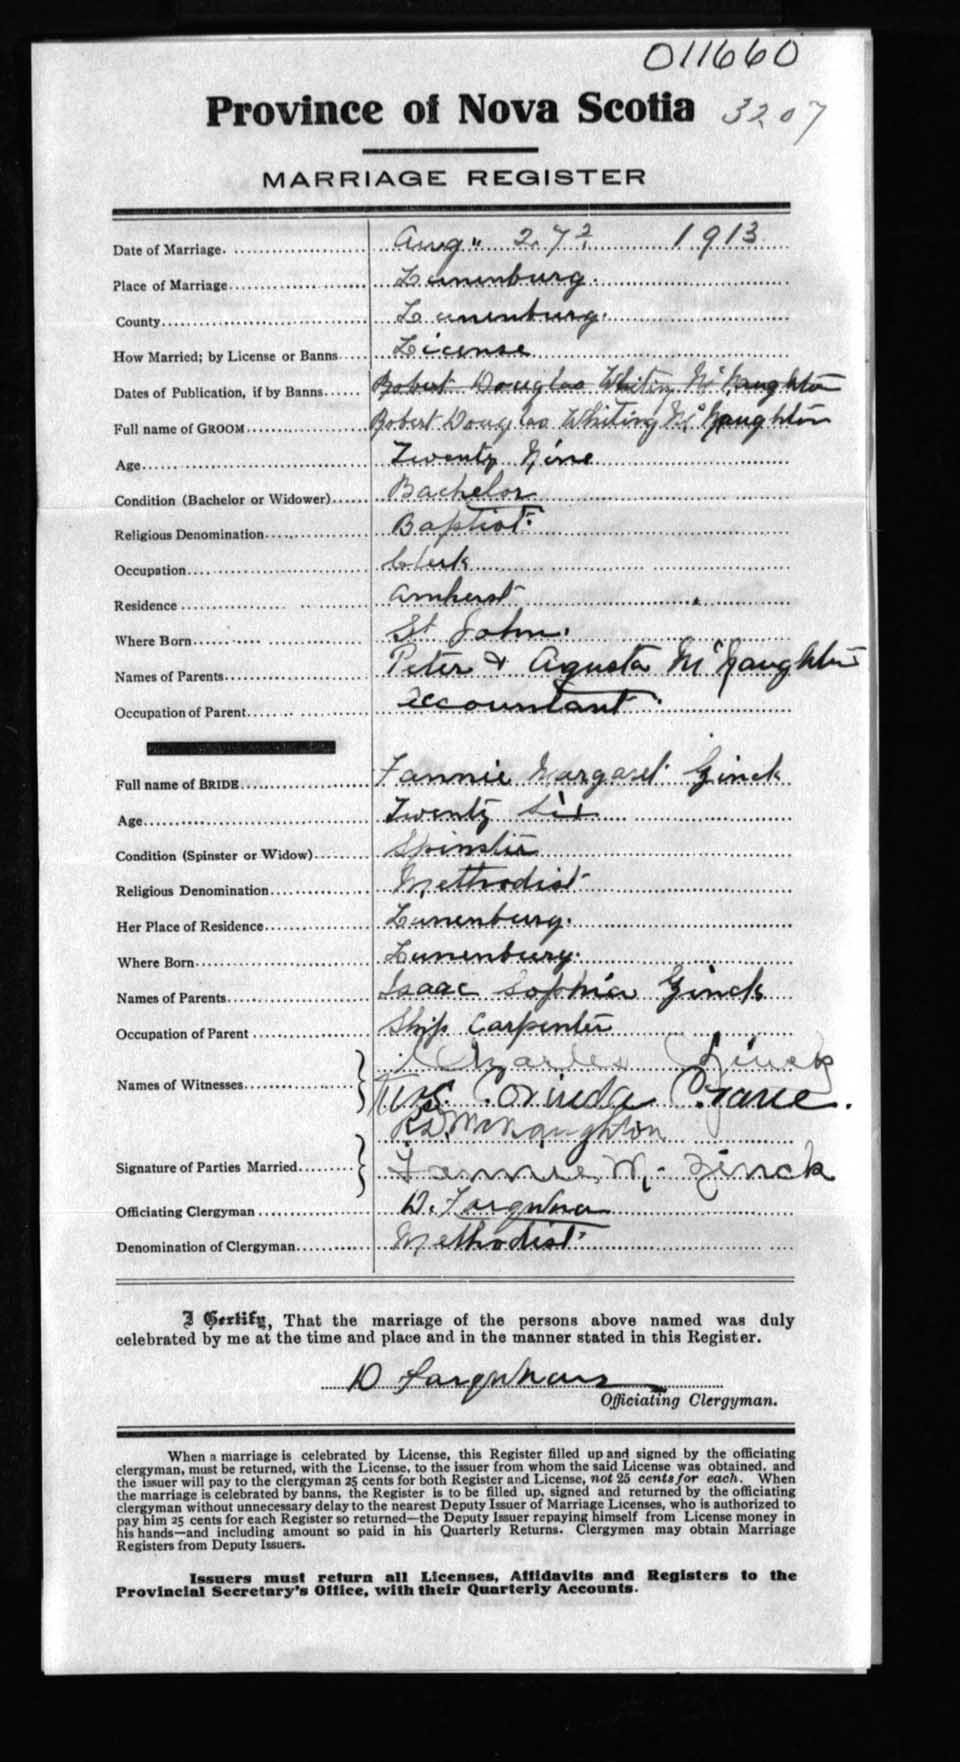 011660
Province of Nova Scotia 3207
MARRIAGE REGISTER
Date of Marriage. Aug. 27 1913
Place of Marriage Lunenburg.
County Lunenburg.
How Married; by License or Banns License
Dates of Publication, if by Banns Robert Douglas Whiting McNaughton
Full name of GROOM Robert Douglas Whiting McNaughton
Age Twenty Nine
Condition (Bachelor or Widower) Bachelor
Religious Denomination Baptist.
Occupation Clerk
Residence Amherst
Where Born St John.
Names of Parents Peter & Agusta McNaughton
Occupation of Parent Accountant
Full name of BRIDE Fannie Margaret Zinck
Age Twenty Six
Condition (Spinster or Widow) Spinster
Religious Denomination Methodist
Her Place of Residence Lunenburg.
Where Born Lunenburg.
Names of Parents Isaac Sophia Zinck
Occupation of Parent Ship Carpenter
Charles Zinck
Names of Witnesses Mrs. Corinda Crane.
R.D. McNaughton
Signature of Parties Married Fannie M. Zinck
Officiating Clergyman D. Farquhar
Denomination of Clergyman Methodist
I Certify, That the marriage of the persons above named was duly
celebrated by me at the time and place and in the manner stated in this Register.
D Farquhar
Officiating Clergyman.
When a marriage is celebrated by License, this Register filled up and signed by the officiating
clergyman, must be returned, with the License, to the issuer from whom the said License was obtained, and
the issuer will pay to the clergyman 25 cents for both Register and License, not 25 cents for each. When
the marriage is celebrated by banns, the Register is to be filled up, signed and returned by the officiating
clergyman without unnecessary delay to the nearest Deputy Issuer of Marriage Licenses, who is authorized to
pay him 25 cents for each Register so returned—the Deputy Issuer repaying himself from License money in
his hands—and including amount so paid in his Quarterly Returns. Clergymen may obtain Marriage
Registers from Deputy Issuers.
Issuers must return all Licenses, Affidavits and Registers to the
Provincial Secretary's Office, with their Quarterly Accounts.